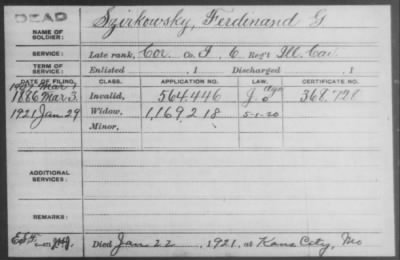 DEAD
NAME OF SOLDIER: Szirkowsky, Ferdinand G
SERVICE: Late rank, Cor. Co. I, 6 Reg't Ill. Cav.
TERM OF SERVICE: Enlisted , 1 Discharged , 1
DATE OF FILING. CLASS. APPLICATION NO. LAW. CERTIFICATE NO.
1886 Mar. 3. Invalid, 564.446 368.728
1921 Jan 29 Widow, 1,169 218 5-1-20
Minor,
ADDITIONAL SERVICES:
REMARKS:
Died Jan 22, 1921, at Kans City, Mo